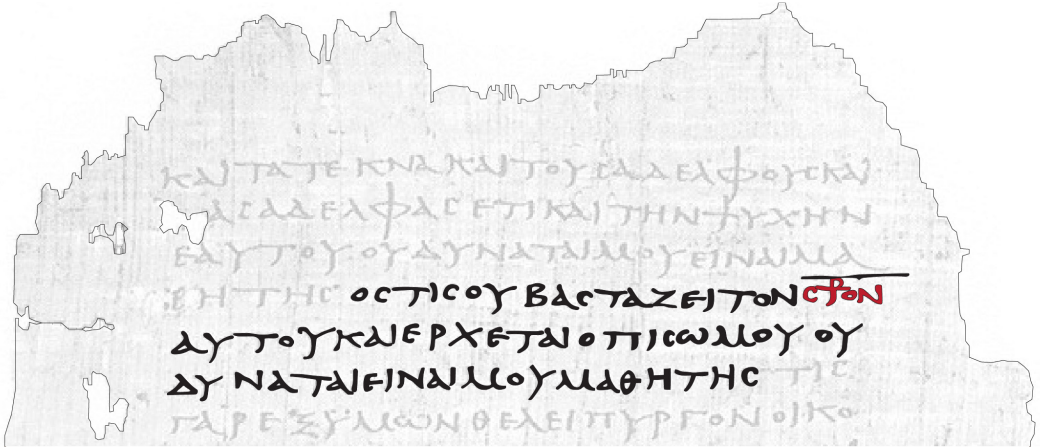 ΚΑΙΤΑΤΕΚΝΑΚΑΙΤΟΥϹΑΔΕΛΦΟΥϹΚΑΙ
ΑϹΑΔΕΛΦΑϹΕΤΙΚΑΙΤΗΝΨΥΧΗΝ
ΕΑΥΤΟΥΟΥΔΥΝΑΤΑΙΜΟΥΕΙΝΑΙΜΑ
ΘΗΤΗϹ ΟϹΤΙϹΟΥΒΑϹΤΑΖΕΙΤΟΝϹ⳨ΟΝ
ΑΥΤΟΥΚΑΙΕΡΧΕΤΑΙΟΠΙϹΩΜΟΥ ΟΥ
ΔΥΝΑΤΑΙΕΙΝΑΙΜΟΥΜΑΘΗΤΗϹ ΤΙϹ
ΓΑΡΕΞΫΜΩΝΘΕΛΕΙΠΥΡΓΟΝΟΙΚΟ